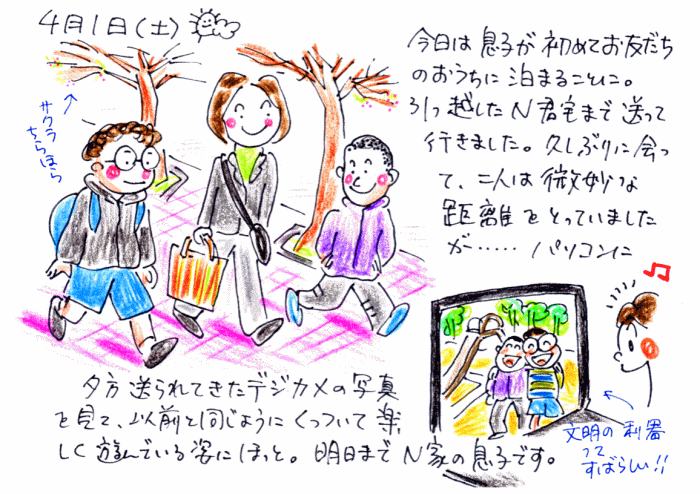 4月1日(土)
サクラ
ちらほら
今日は息子が初めてお友だち
のおうちに泊まることに。
引っ越したN君宅まで送って
行きました。久しぶりに会っ
て、二人は微妙な
距離をとっていました
が…… パソコンに
夕方送られてきたデジカメの写真
を見て、以前と同じようにくっついて楽
しく遊んでいる姿にほっと。明日までN家の息子です。
文明の利器
って
すばらしい!!